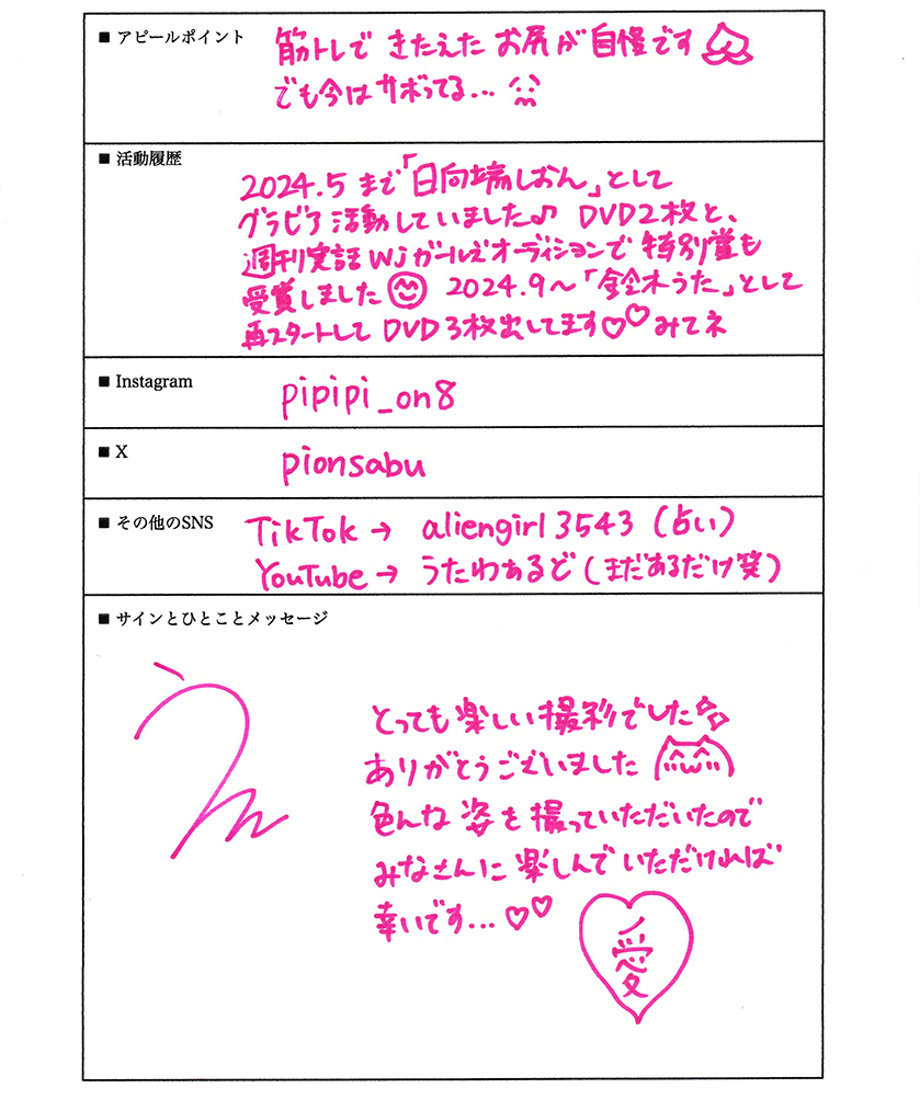 ■ アピールポイント
筋トレで きたえた お尻が 自慢です
でも今は サボってる...
■ 活動履歴
2024.5 まで「日向端しおん」として
グラビア活動していました♪ DVD2枚と、
週刊実話WJガールズオーディションで 特別賞も
受賞しました 2024.9〜「鈴木うた」として
再スタートして DVD3枚出してます♡♡ みてネ
■ Instagram
pipipi_on8
■ X
pionsabu
■ その他のSNS
TikTok → aliengirl3543 (占い)
YouTube → うたわぁるど (まだあるだけ笑)
■ サインとひとことメッセージ
とっても楽しい撮影でした
ありがとうございました
色んな 姿を 撮っていただいたので
みなさんに 楽しんでいただければ
幸いです...♡♡
愛